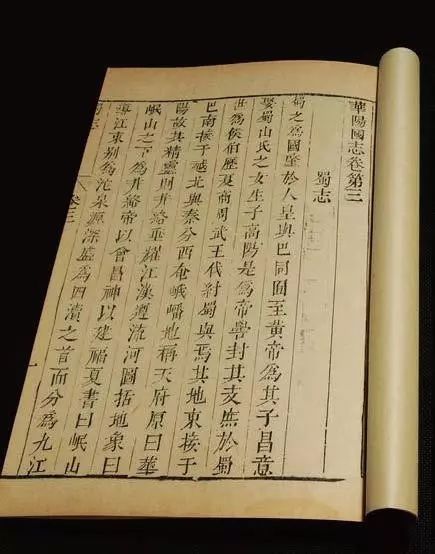 華陽國志卷第三
蜀志
蜀之為國肇於人皇與巴同囿至黃帝為其子昌意
娶蜀山氏之女生子高陽是為帝嚳封其支庶於蜀
世為侯伯歷夏商周武王伐紂蜀與焉其地東接于
巴南接于越北與秦分西奄峨嶓地稱天府原曰華
陽故其精靈則井絡垂耀江漢遵流河圖括地象曰
岷山之下為井絡帝以會昌神以建福夏書曰岷山
導江東別為沱泉源深盛為四瀆之首而分為九江
卷三